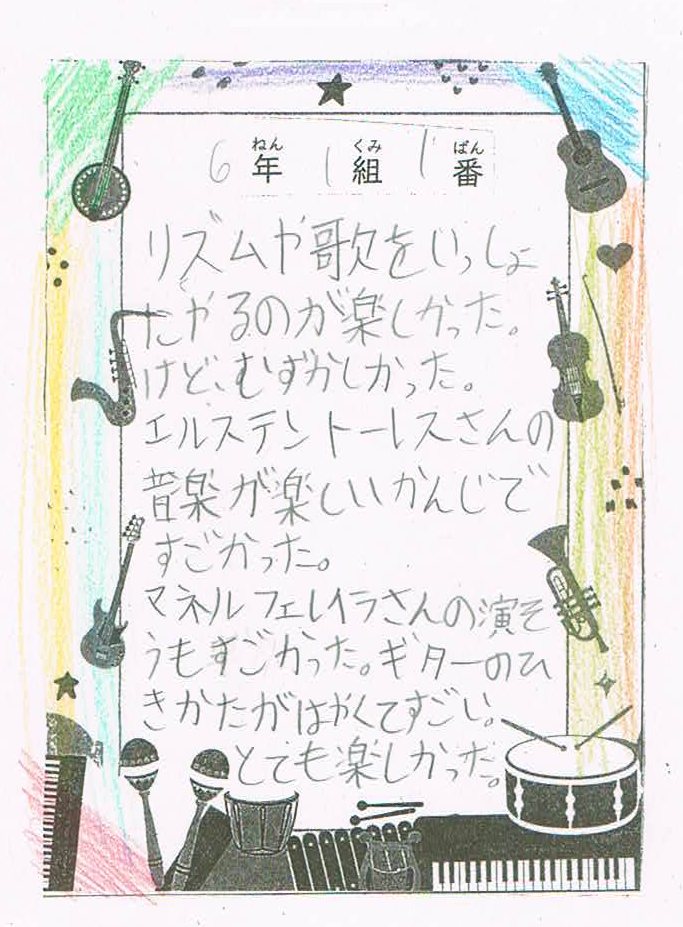 6年1組1番
リズムや歌をいっしょ
にやるのが楽しかった。
けど、むずかしかった。
エルステントーレスさんの
音楽が楽しいかんじで
すごかった。
マネルフェレイラさんの演そ
うもすごかった。ギターのひ
きかたがはやくてすごい。
とても楽しかった。